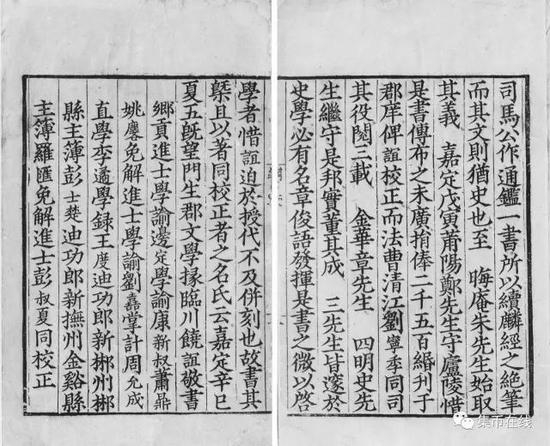 司馬公作通鑑一書所以續麟經之絕筆
而其文則猶史也至 晦庵朱先生始取
其義 嘉定戊寅莆陽鄭先生守廬陵惜
是書傳布之未廣捐俸二千五百緡刊于
郡庠俾誼校正而法曹清江劉寧季同司
其役閱三載 金華章先生 四明史先
生繼守是邦實董其成 三先生皆邃於
史學必有名章俊語發揮是書之微以啓
學者惜誼迫於授代不及併刻也故書其
槩且以著同校正者之名氏云嘉定辛巳
夏五旣望門生郡文學掾臨川饒誼敬書
鄉貢進士學諭邊定學諭康新叔蕭鼎
姚免解進士學諭劉嘉掌計周允成
直學李學録王度迪功郎新郴州郴
縣主薄彭士迪功郎新撫州金谿縣
主薄羅匯免解進士彭叔夏同校正
集市在线